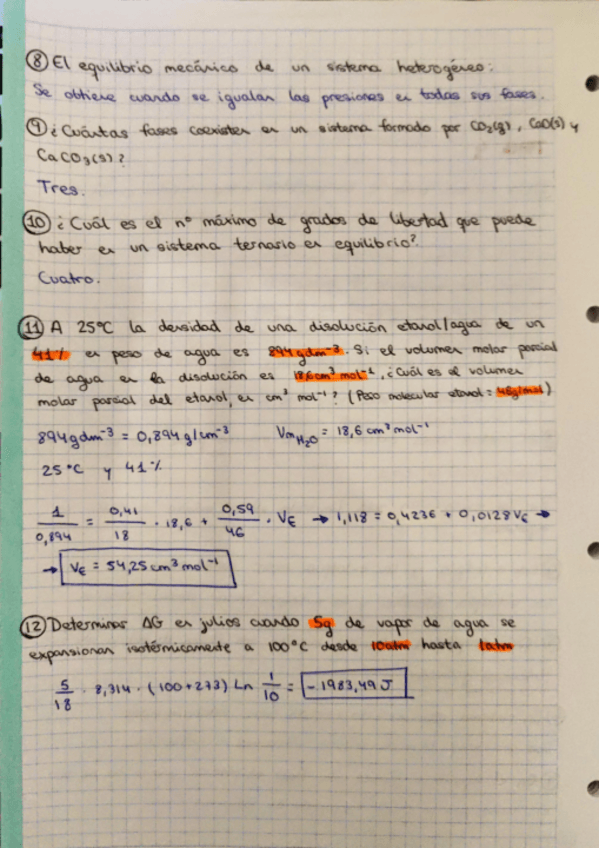 ⑧ El equilibrio mecánico de un sistema heterogéneo:
Se obtiene cuando se igualan las presiones en todas sus fases.
⑨ ¿Cuántas fases coexisten en un sistema formado por CO₂(g), CaO(s) y
CaCO₃(s)?
Tres.
⑩ ¿Cuál es el nº máximo de grados de libertad que puede
haber en un sistema ternario en equilibrio?
Cuatro.
⑪ A 25ºC la densidad de una disolución etanol/agua de un
41% en peso de agua es 894 g dm⁻³. Si el volumen molar parcial
de agua en la disolución es 18,6 cm³ mol⁻¹, ¿Cuál es el volumen
molar parcial del etanol, en cm³ mol⁻¹? (Peso molecular etanol = 46g/mol)
894 g dm⁻³ = 0,894 g/cm⁻³ Vm H₂O = 18,6 cm³ mol⁻¹
25ºC y 41%
1/0,894 = 0,41/18 · 18,6 + 0,59/46 · VE → 1,118 = 0,4236 + 0,0128 VE →
→ VE = 54,25 cm³ mol⁻¹
⑫ Determinar ΔG en julios cuando 5g de vapor de agua se
expansionan isotérmicamente a 100ºC desde 10atm hasta 1atm
5/18 · 8,314 · (100+273) Ln 1/10 = -1983,49 J